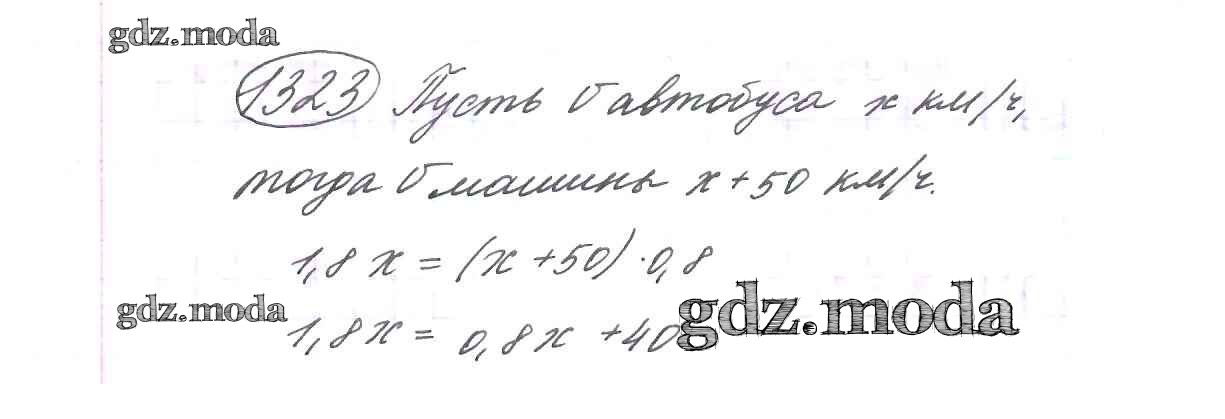 gdz.moda
1323 Пусть v автобуса x км/ч,
тогда v машины x + 50 км/ч.
1,8 x = (x + 50) · 0,8
gdz.moda
gdz.moda
1,8x = 0,8x + 40